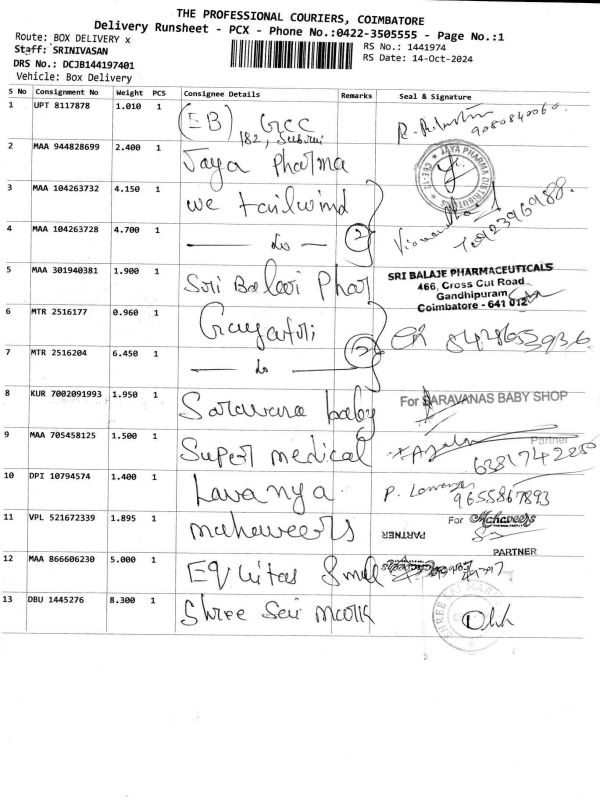 THE PROFESSIONAL COURIERS, COIMBATORE
Delivery Runsheet - PCX - Phone No.:0422-3505555 - Page No.:1
Route: BOX DELIVERY x
Staff: SRINIVASAN
RS No.: 1441974
DRS No.: DCJB144197401
RS Date: 14-Oct-2024
Vehicle: Box Delivery
S No Consignment No Weight PCS Consignee Details Remarks Seal & Signature
1 UPT 8117878 1.010 1 (EB) GCC
182,
9080840060.
2 MAA 944828699 2.400 1 Jaya Pharma
JAYA PHARMA DISTRIBUTORS
3 MAA 104263732 4.150 1 we tailwind
4 MAA 104263728 4.700 1 — do — 2
5 MAA 301940381 1.900 1 Sri Balaji Phar
SRI BALAJE PHARMACEUTICALS
466, Cross Cut Road
Gandhipuram
Coimbatore - 641 012
6 MTR 2516177 0.960 1 Gayatri
7 MTR 2516204 6.450 1 — do —
8 KUR 7002091993 1.950 1 Saravana baby
For SARAVANAS BABY SHOP
Partner
9 MAA 705458125 1.500 1 Super medical
6381742280
10 DPI 10794574 1.400 1 Lavanya
9655867893
11 VPL 521672339 1.895 1 mahaveers
For Mahaveers
PARTNER
PARTNER
12 MAA 866606230 5.000 1 Equitas Small
13 DBU 1445276 8.300 1 Shree Sai mark